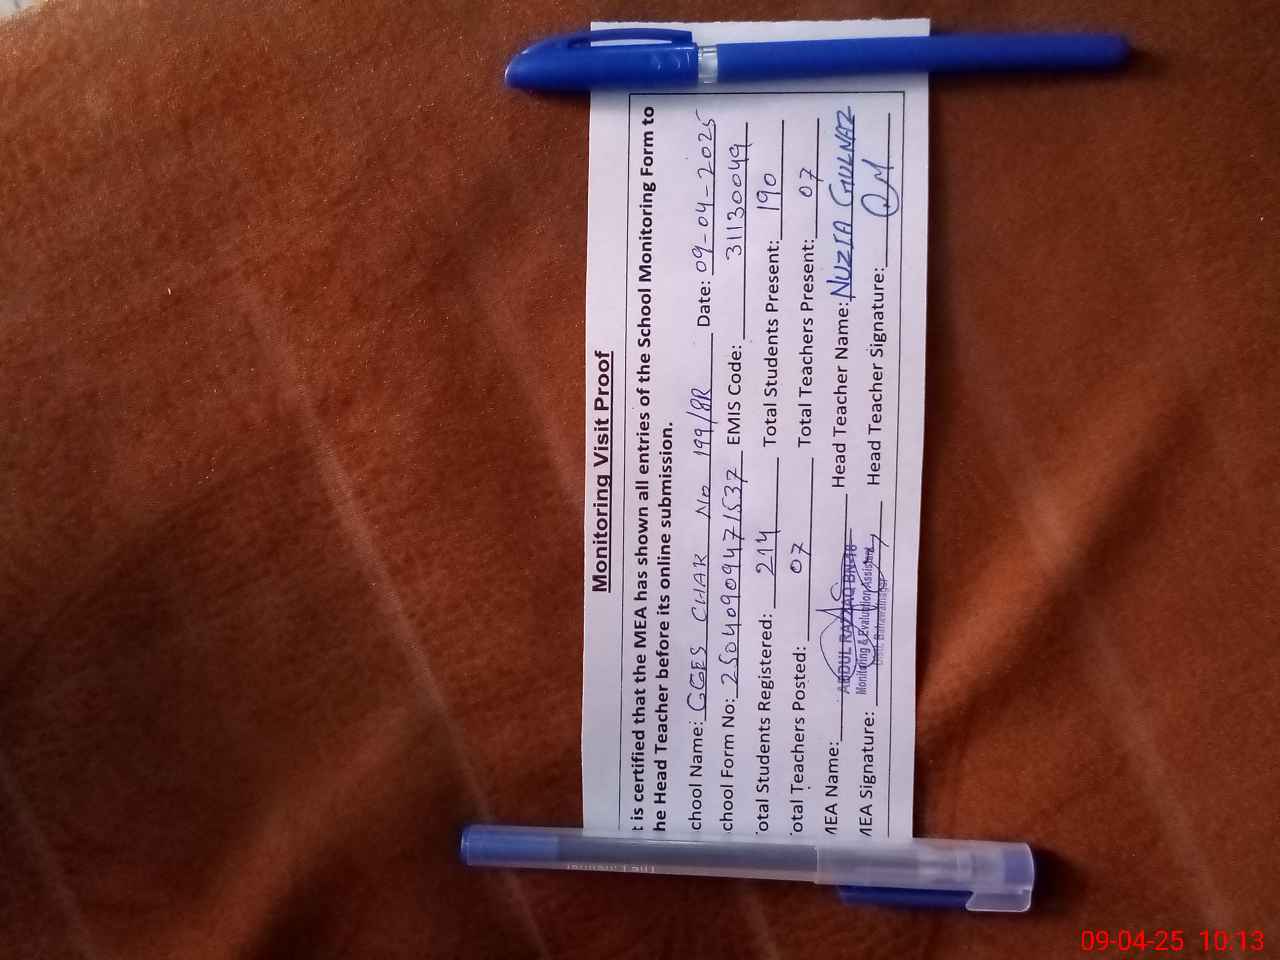 Monitoring Visit Proof
t is certified that the MEA has shown all entries of the School Monitoring Form to
he Head Teacher before its online submission.
chool Name: GGES CHAK No 199/8R Date: 09-04-2025
chool Form No: 25040909471537 EMIS Code: 31130049
otal Students Registered: 214 Total Students Present: 190
otal Teachers Posted: 07 Total Teachers Present: 07
MEA Name: ABDUL RAZZAQ Head Teacher Name: NUZIA GULNAZ
Monitoring & Evaluation Assistant
MEA Signature: Bahawalnagar Head Teacher Signature:
09-04-25 10:13